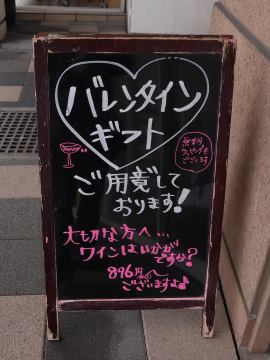 バレンタイン
ギフト
無料
ラッピングも
ございます
ご用意して
おります!
大切な方へ…
ワインはいかが
ですか?
896円から
ございますよ♪